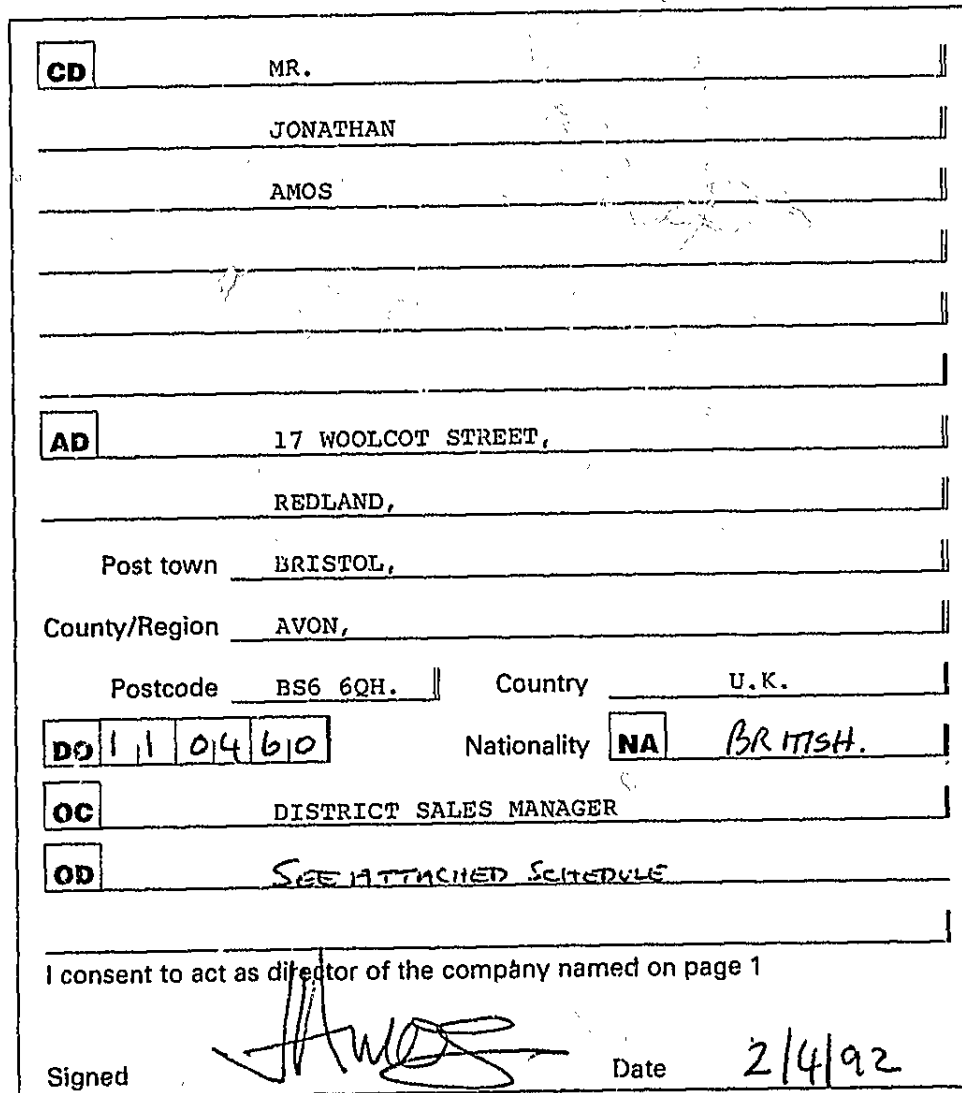 CD MR.
JONATHAN
AMOS
AD 17 WOOLCOT STREET,
REDLAND,
Post town BRISTOL,
County/Region AVON,
Postcode BS6 6QH. Country U.K.
DO 11 04 60 Nationality NA BRITISH.
OC DISTRICT SALES MANAGER
OD SEE ATTACHED SCHEDULE
I consent to act as director of the company named on page 1
Signed J Amos Date 2/4/92